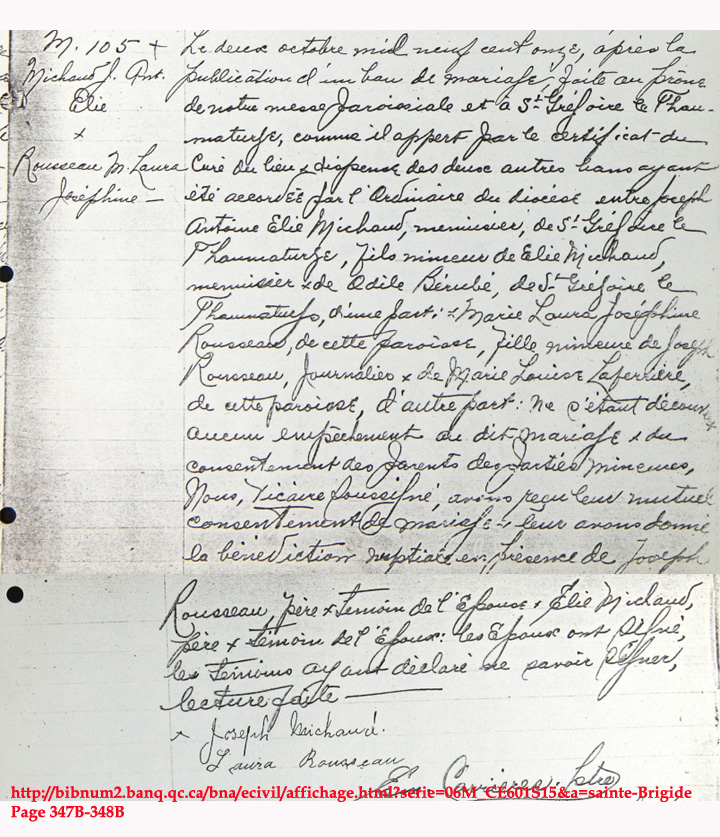 M. 105 +
Michaud J. Ant.
Elie
x
Rousseau M. Laura
Joséphine —
Le deux octobre mil neuf cent onze, après la
publication d'un ban de mariage, faite au prône
de notre messe paroissiale et à St. Grégoire le Thau-
maturge, comme il appert par le certificat du
Curé du lieu & dispense des deux autres bans ayant
été accordée par l'Ordinaire du diocèse entre Joseph
Antoine Elie Michaud, menuisier, de St. Grégoire le
Thaumaturge, fils mineur de Elie Michaud,
menuisier & de Odile Bérubé, de St. Grégoire le
Thaumaturge, d'une part: & Marie Laura Joséphine
Rousseau, de cette paroisse, fille mineure de Joseph
Rousseau, Journalier & de Marie Louise Laferrière,
de cette paroisse, d'autre part: ne s'étant découvert
aucun empêchement au dit mariage & du
consentement des parents des parties mineures,
Nous, Vicaire soussigné, avons reçu leur mutuel
consentement de mariage & leur avons donné
la bénédiction nuptiale en présence de Joseph
Rousseau, père & témoin de l'Epouse & Elie Michaud,
père & témoin de l'Epoux: les Epoux ont signé,
les témoins ayant déclaré ne savoir signer,
lecture faite —
x Joseph Michaud.
Laura Rousseau
Carrières, Ptre
http://bibnum2.banq.qc.ca/bna/ecivil/affichage.html?serie=06M_CE601S15&a=sainte-Brigide
Page 347B-348B